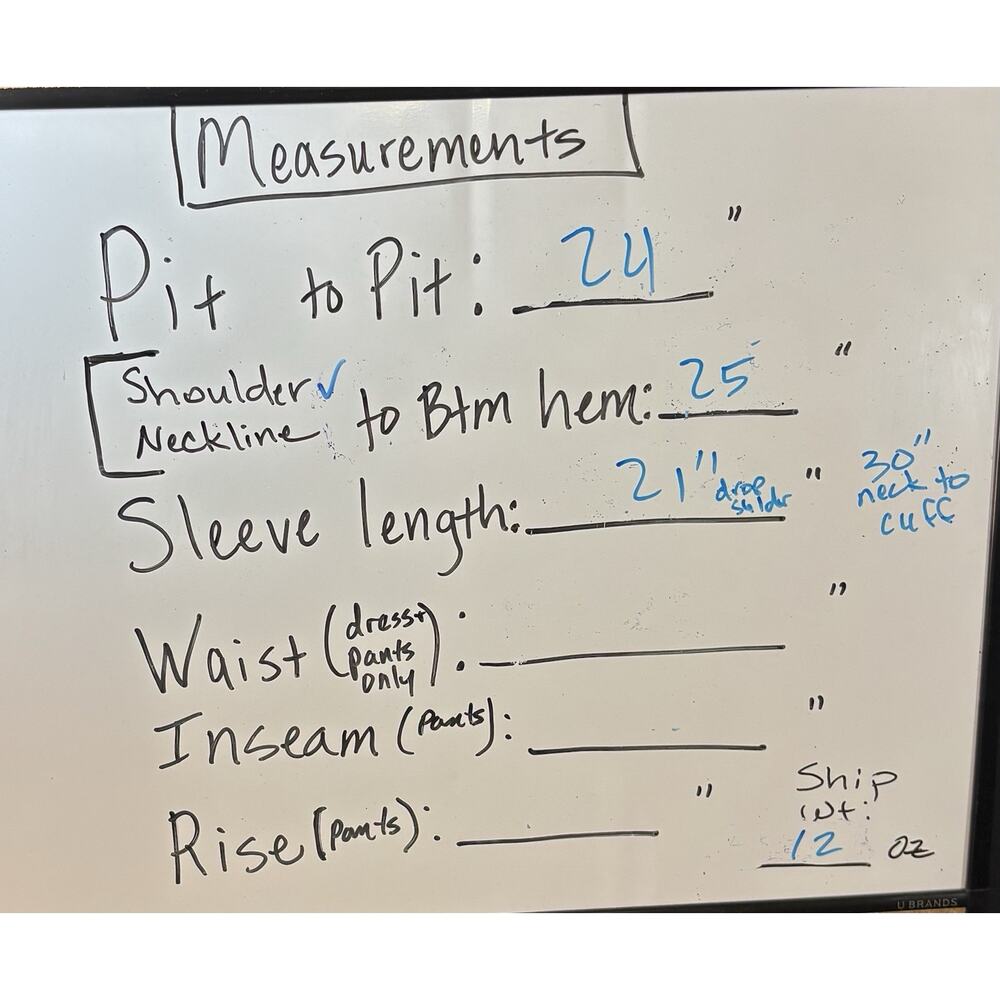 Measurements
Pit to Pit: 24 "
Shoulder ✓
Neckline to Btm hem: 25 "
Sleeve length: 21" drop shlder " 30" neck to cuff
Waist (dress+ pants only): "
Inseam (pants): "
Rise (pants): "
Ship
wt:
12 oz
U BRANDS